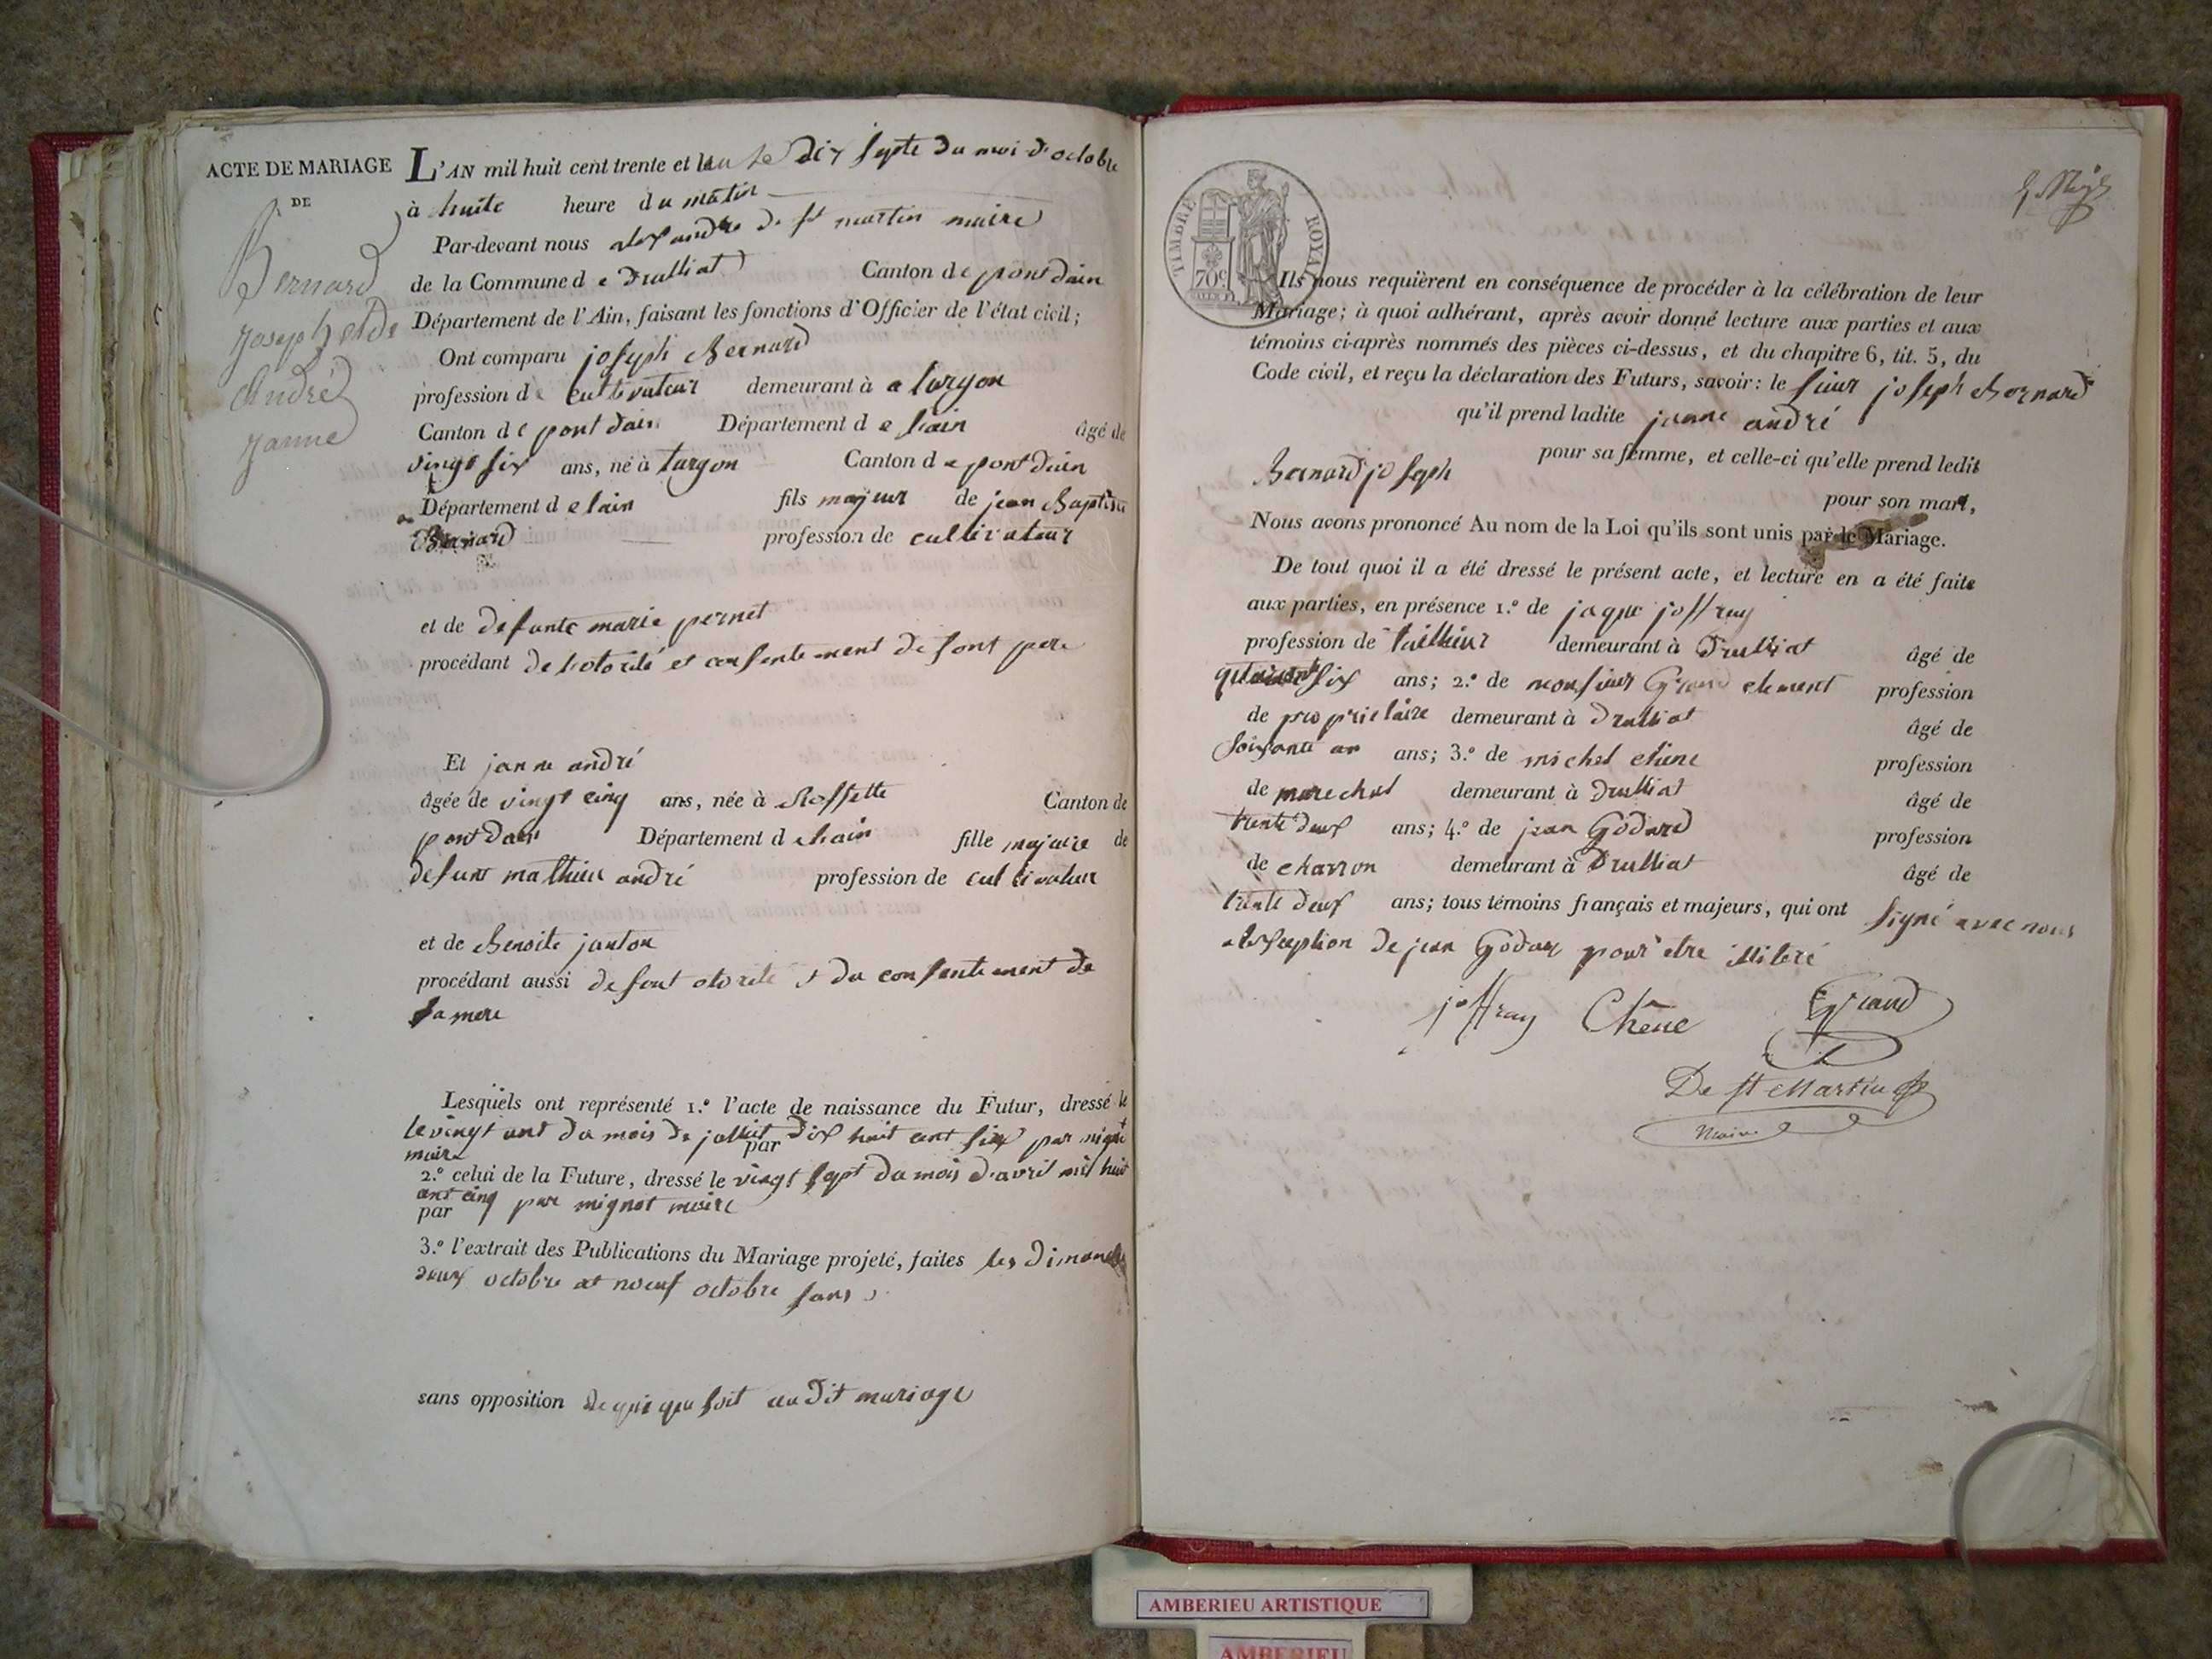 ACTE DE MARIAGE
DE
Bernard
Joseph et de
André
Janne
L'AN mil huit cent trente et un le dix septe du moi d'octobre
à huite heure du matin
Par-devant nous alexandre de st martin maire
de la Commune de Drulliat Canton de pont dain
Département de l'Ain, faisant les fonctions d'Officier de l'état civil;
Ont comparu joseph Bernard
profession de cultivateur demeurant à a turgon
Canton de pont dain Département de lain âgé de
vingt six ans, né à turgon Canton de pont dain
Département de lain fils majeur de jean Baptiste
Bernard profession de cultivateur
et de defunte marie pernet
procédant de lotorité et consentement de sont pere
Et janne andré
âgée de vingt cinq ans, née à Rossette Canton de
pont dain Département de lain fille majeure de
defunt mathieu andré profession de cultivateur
et de Benoite janton
procédant aussi de sont otorité et du consentement de
sa mere
Lesquels ont représenté 1.º l'acte de naissance du Futur, dressé le
le vingt unt du mois de julliet dix huit cent six par mignot
par
maire
2.º celui de la Future, dressé le vingt sept du mois d'avril mil huit
cent cinq par mignot maire
par
3.º l'extrait des Publications du Mariage projeté, faites les dimanche
deux octobre et noeuf octobre sans
sans opposition de qui que soit audit mariage
TIMBRE ROYAL
70c
Ils nous requièrent en conséquence de procéder à la célébration de leur
Mariage; à quoi adhérant, après avoir donné lecture aux parties et aux
témoins ci-après nommés des pièces ci-dessus, et du chapitre 6, tit. 5, du
Code civil, et reçu la déclaration des Futurs, savoir: le sieur joseph Bernard
qu'il prend ladite janne andré
pour sa femme, et celle-ci qu'elle prend ledit
Bernard joseph
pour son mari,
Nous avons prononcé Au nom de la Loi qu'ils sont unis par le Mariage.
De tout quoi il a été dressé le présent acte, et lecture en a été faite
aux parties, en présence 1.º de jaque joffray
profession de tailleur demeurant à Drulliat âgé de
quarante six ans; 2.º de monsieur Grand clement profession
de proprietaire demeurant à drulliat âgé de
soissante an ans; 3.º de michel chene profession
de marechal demeurant à drulliat âgé de
trente deux ans; 4.º de jean Godard profession
de charron demeurant à Drulliat âgé de
trente deux ans; tous témoins français et majeurs, qui ont signé avec nous
a lexseption de jean Godar pour etre illiteré
joffray Chêne Grand
De st Martin
Maire
AMBERIEU ARTISTIQUE
AMBERIEU